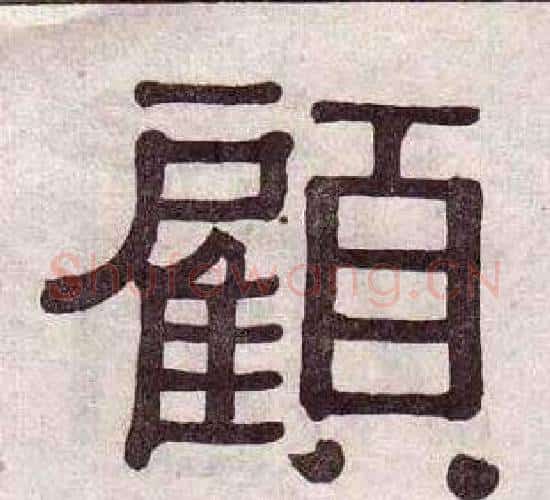 顧
Shufawang.CN